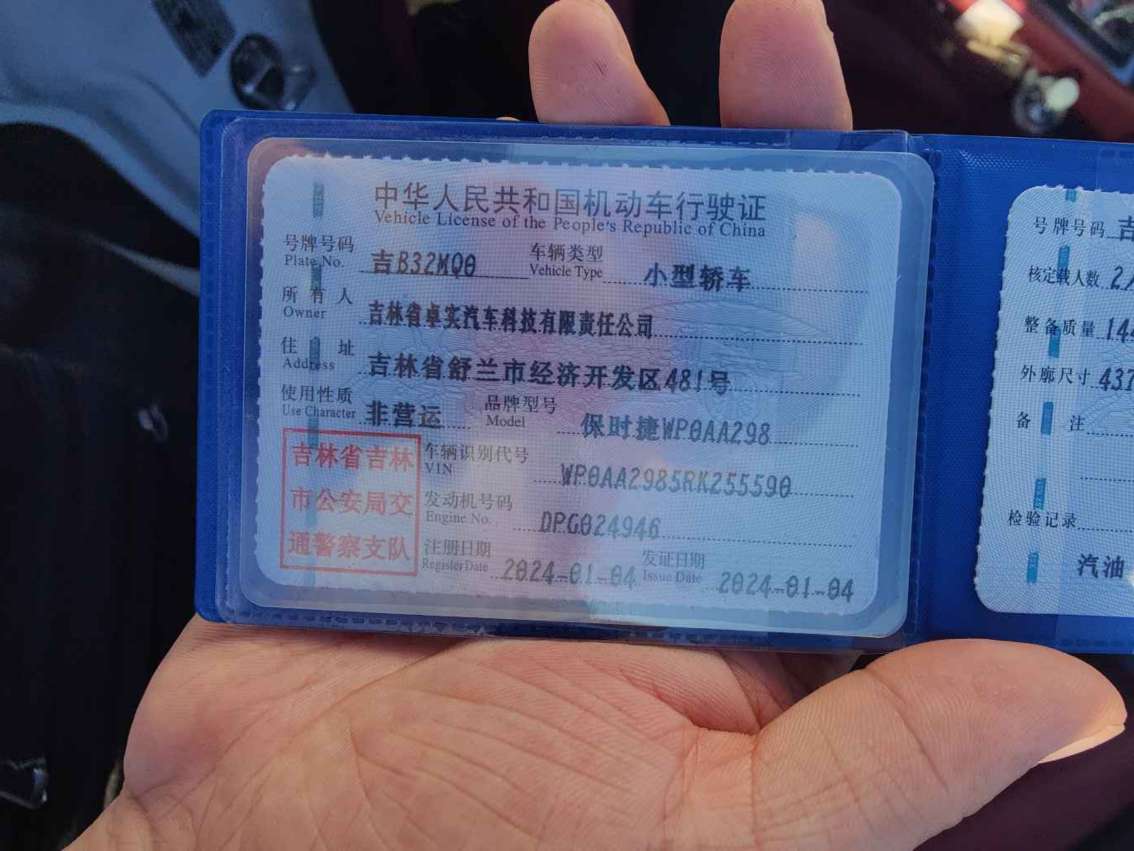 中华人民共和国机动车行驶证
Vehicle License of the People's Republic of China
号牌号码 吉B32MQ0 车辆类型 小型轿车
Plate No. Vehicle Type
所有人 吉林省卓实汽车科技有限责任公司
Owner
住址 吉林省舒兰市经济开发区481号
Address
使用性质 非营运 品牌型号 保时捷WP0AA298
Use Character Model
吉林省吉林
市公安局交
通警察支队
车辆识别代号 WP0AA2985RK255590
VIN
发动机号码 DPG024946
Engine No.
注册日期 2024-01-04 发证日期 2024-01-04
Register Date Issue Date
号牌号码 吉
核定载人数 2
整备质量 14
外廓尺寸 437
备注
检验记录
汽油